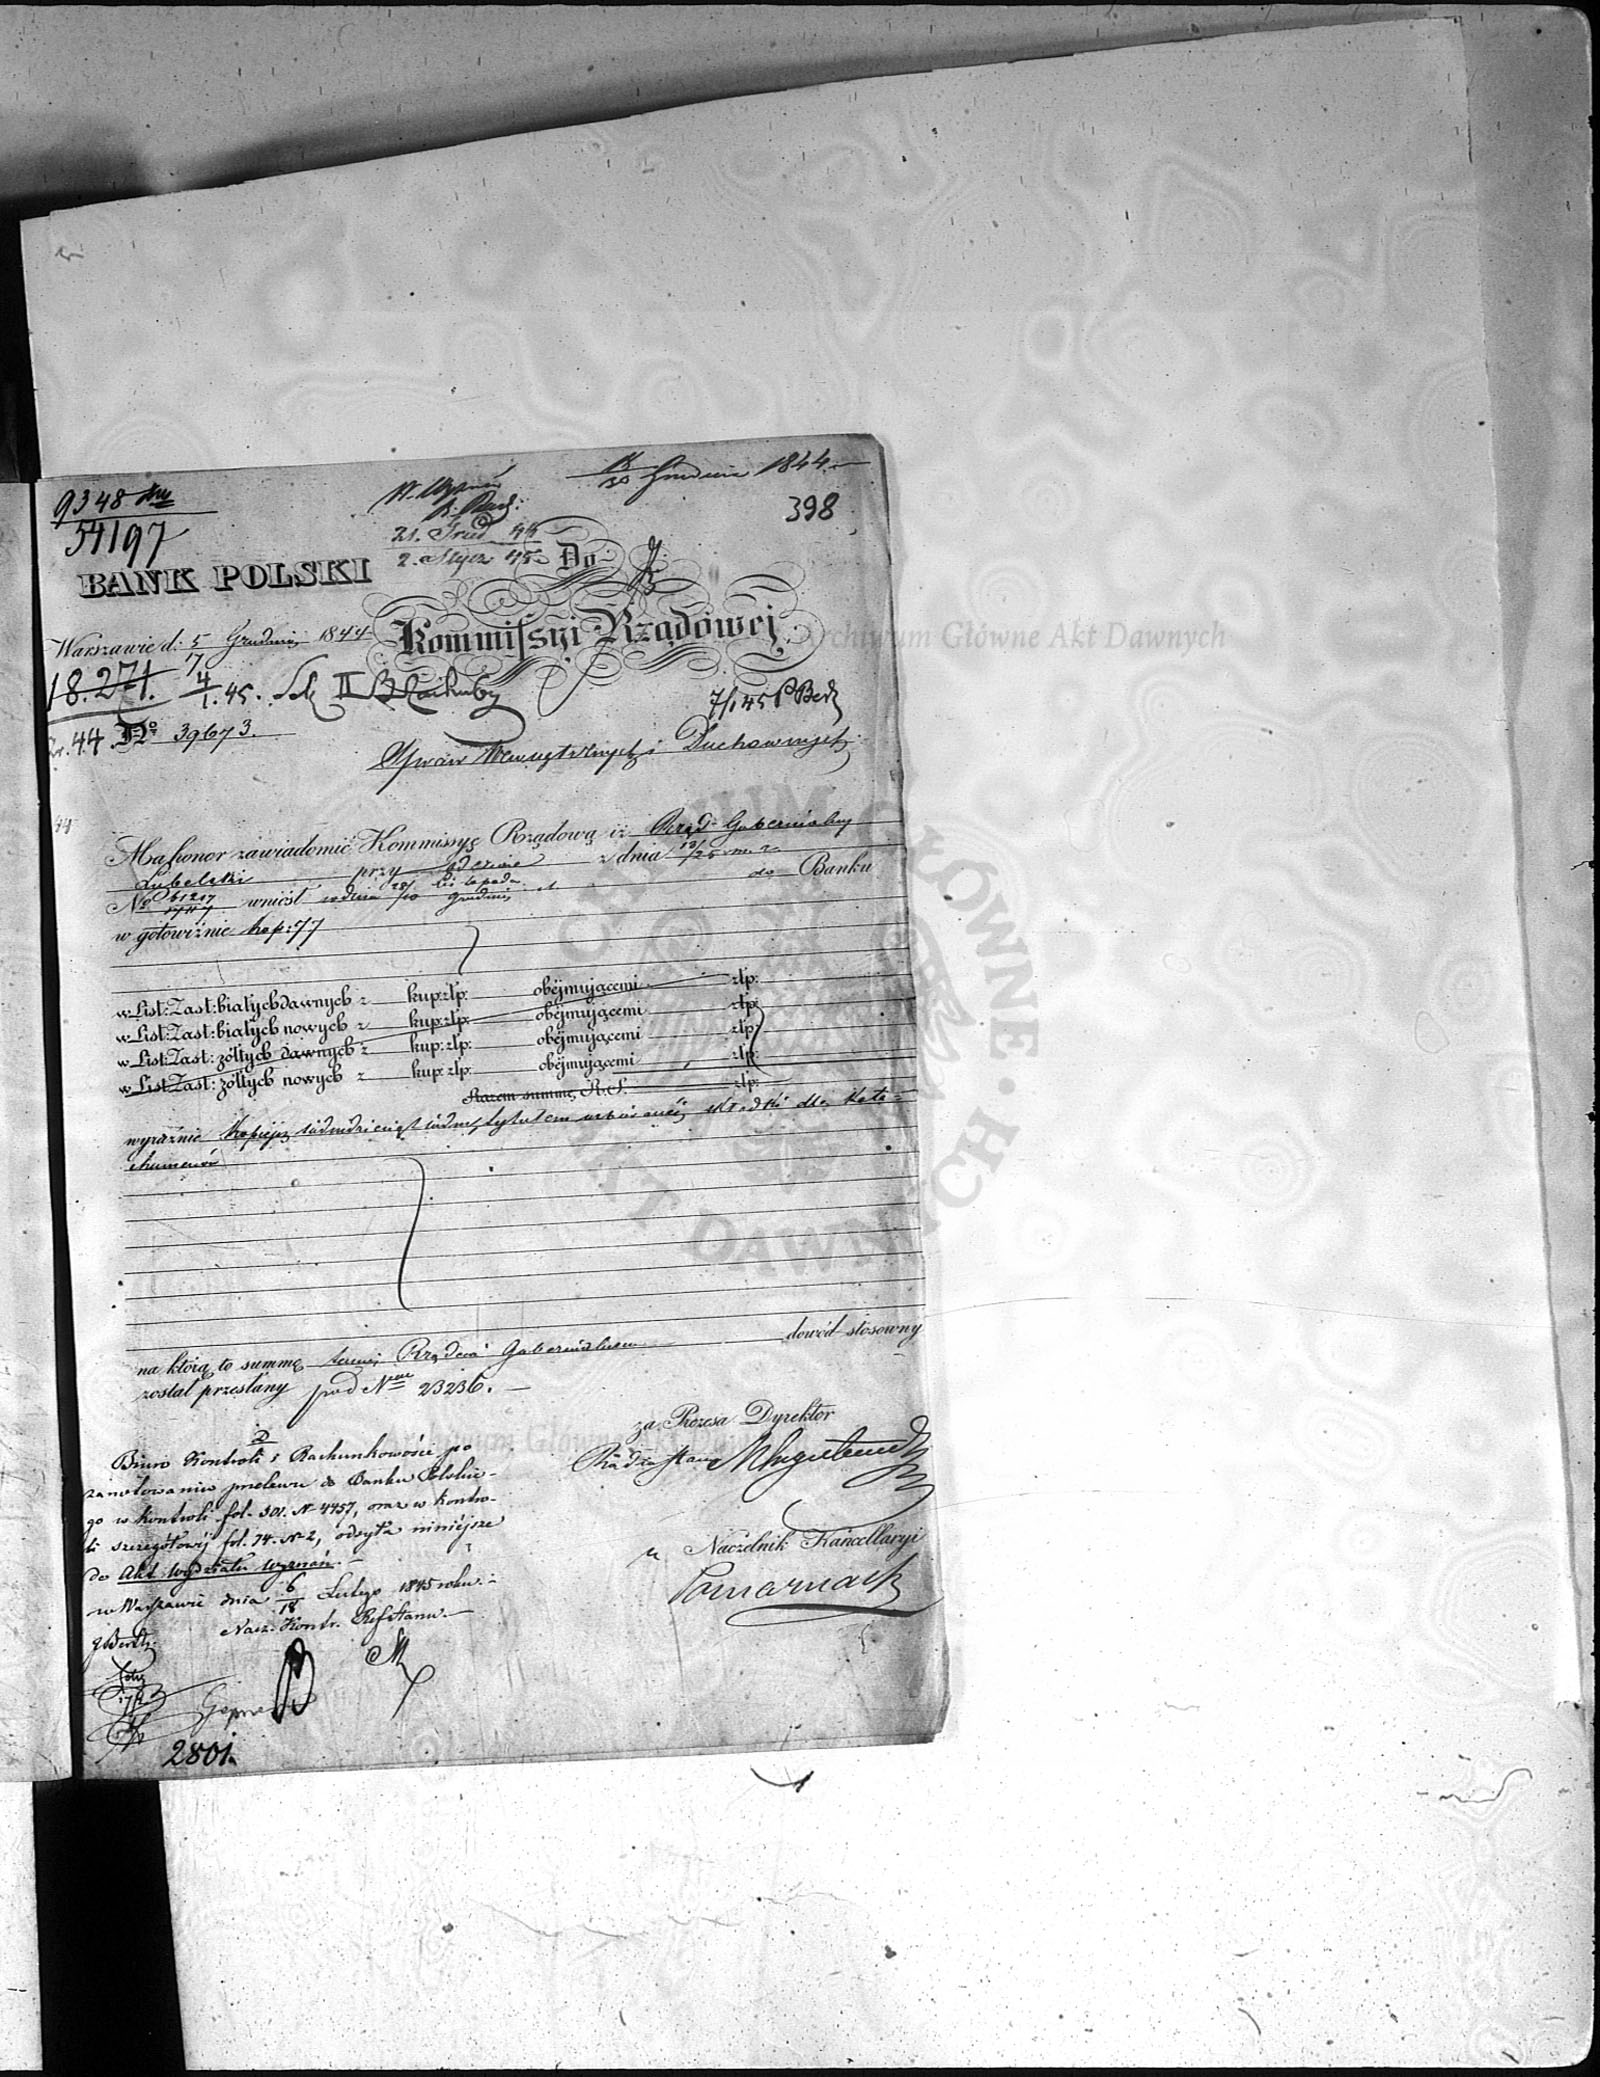 18/30 Grudnia 1844.
398
9348
54197
21. Grud 44
2. Stycz 45
BANK POLSKI
Do
Kommissyi Rządowej
Warszawie d: 5 Grudnia 1844
7
18.271. 4/1.45. II
7/1 45
44 No 39673.
Spraw Wewnętrznych i Duchownych
Ma honor zawiadomić Kommissyę Rządową iż Rząd Gubernialny
Lubelski przy z dnia 13/25 m. r.
No 61217 wniósł w dniu 28/10 Listopada Grudnia do Banku
w gotowiźnie kop: 77
w List: Zast: białych dawnych z kup: złp: obejmującemi złp:
w List: Zast: białych nowych z kup: złp: obejmującemi złp:
w List: Zast: żółtych dawnych z kup: złp: obejmującemi złp:
w List: Zast: żółtych nowych z kup: złp: obejmującemi złp:
Razem summę R. S. złp:
wyraźnie Kopiejek siedmdziesiąt siedm, tytułem składki dla Kate-
chumenów
na którą to summę temuż Rządowi Gubernialnemu dowód stosowny
został przesłany pod Nrem 23236.
za Prezesa Dyrektor
Radca Stanu
Naczelnik Kancellaryi
Biuro Kontroli i Rachunkowości po
zanotowaniu przelewu do Banku Polskie-
go w Kontroli fol. 301. N 4457, oraz w Kontro-
li szczegółowej fol. 74. N 2, odsyła niniejsze
do Akt Wydziału Wyznań.
w Warszawie dnia 6/18 Lutego 1845 roku.
Nacz. Kontr. Ref. Stanu.
2801.
Archiwum Główne Akt Dawnych
Archiwum Główne Akt Dawnych
ARCHIWUM GŁÓWNE AKT DAWNYCH